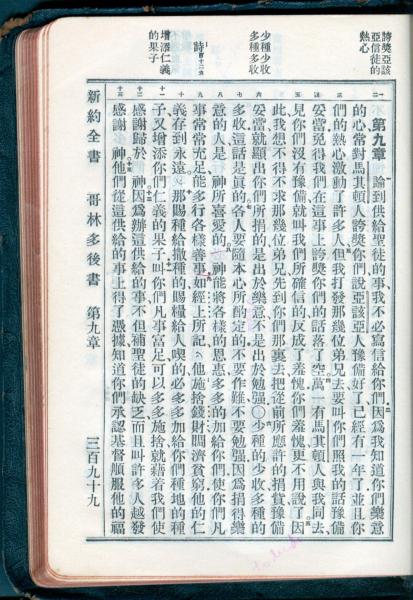 誇獎亞該
亞信徒的
熱心
少種少收
多種多收
增添仁義
的果子
第九章 論到供給聖徒的事我不必寫信給你們因爲我知道你們樂意
的心常對馬其頓人誇獎你們說亞該亞人豫備好了已經有一年了並且你
們的熱心激動了許多人但我打發那幾位弟兄去要叫你們照我的話豫備
妥當免得我們在這事上誇獎你們的話落了空萬一有馬其頓人與我同去
見你們沒有豫備就叫我們所確信的反成了羞愧你們羞愧更不用說了因
此我想不得不求那幾位弟兄先到你們那裏去把從前所應許的捐貲豫備
妥當就顯出你們所捐的是出於樂意不是出於勉強○少種的少收多種的
多收這話是眞的各人要隨本心所酌定的不要作難不要勉強因爲捐得樂
意的人是 神所喜愛的 神能將各樣的恩惠多多的加給你們使你們凡
事常常充足能多行各樣善事如經上所記說他施捨錢財賙濟貧窮他的仁
義存到永遠那賜種給撒種的賜糧給人喫的必多多加給你們種地的種
子又增添你們仁義的果子叫你們凡事富足可以多多施捨就藉着我們使
感謝歸於 神因爲辦這供給的事不但補聖徒的缺乏而且叫許多人越發
感謝 神他們從這供給的事上得了憑據知道你們承認基督順服他的福
新約全書 哥林多後書 第九章 三百九十九